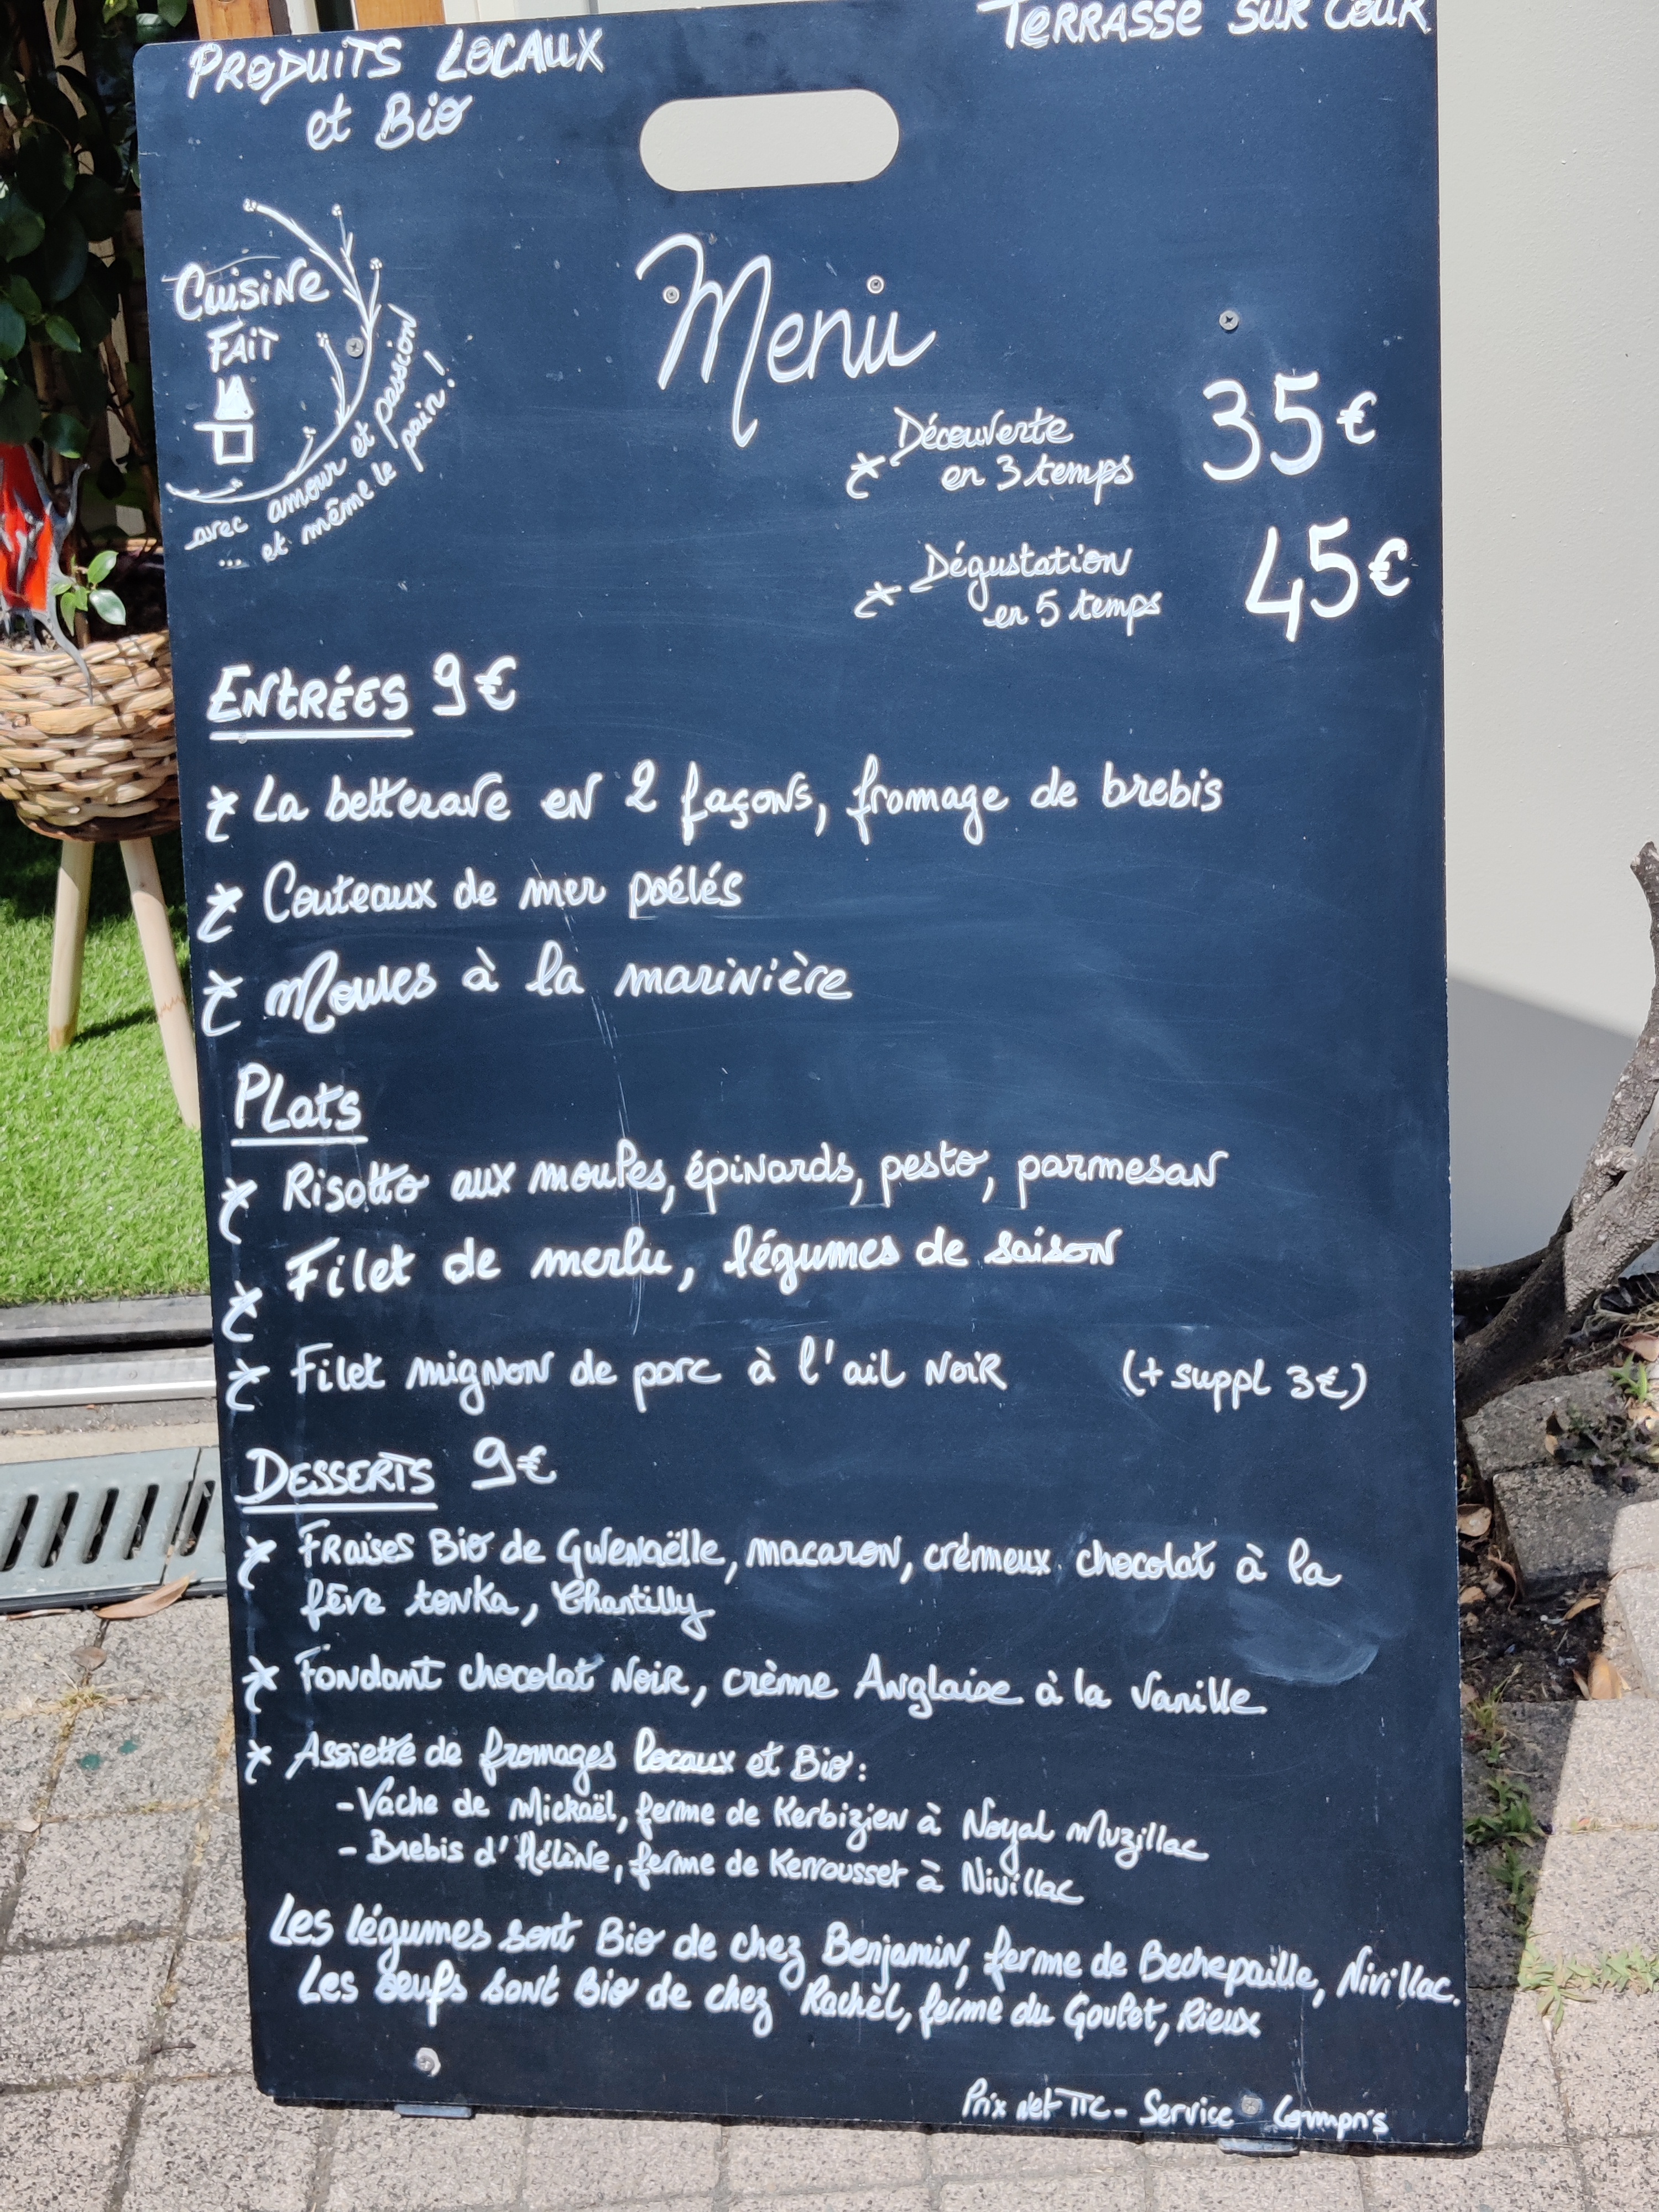 PRODUITS LOCAUX
et Bio
TERRASSE SUR COUR
Cuisine
FAIT
avec amour et passion
... et même le pain !
Menu
Découverte
en 3 temps
35€
Dégustation
en 5 temps
45€
ENTRÉES 9€
La betterave en 2 façons, fromage de brebis
Couteaux de mer poélés
Moules à la marinière
PLats
Risotto aux moules, épinards, pesto, parmesan
Filet de merlu, légumes de saison
Filet mignon de porc à l'ail NOIR (+ suppl 3€)
DESSERTS 9€
FRaises Bio de Gwenaëlle, macaron, crémeux chocolat à la
fève tonka, Chantilly
Fondant chocolat NOIR, crème Anglaise à la Vanille
Assiette de fromages locaux et Bio :
- Vache de Mickaël, ferme de Kerbizien à Noyal Muzillac
- Brebis d'Hélène, ferme de Kerrousset à Nivillac
Les légumes sont Bio de chez Benjamin, ferme de Bechepaille, Nivillac.
Les oeufs sont Bio de chez Rachel, ferme du Goulet, Rieux
Prix net TTC - Service Compris